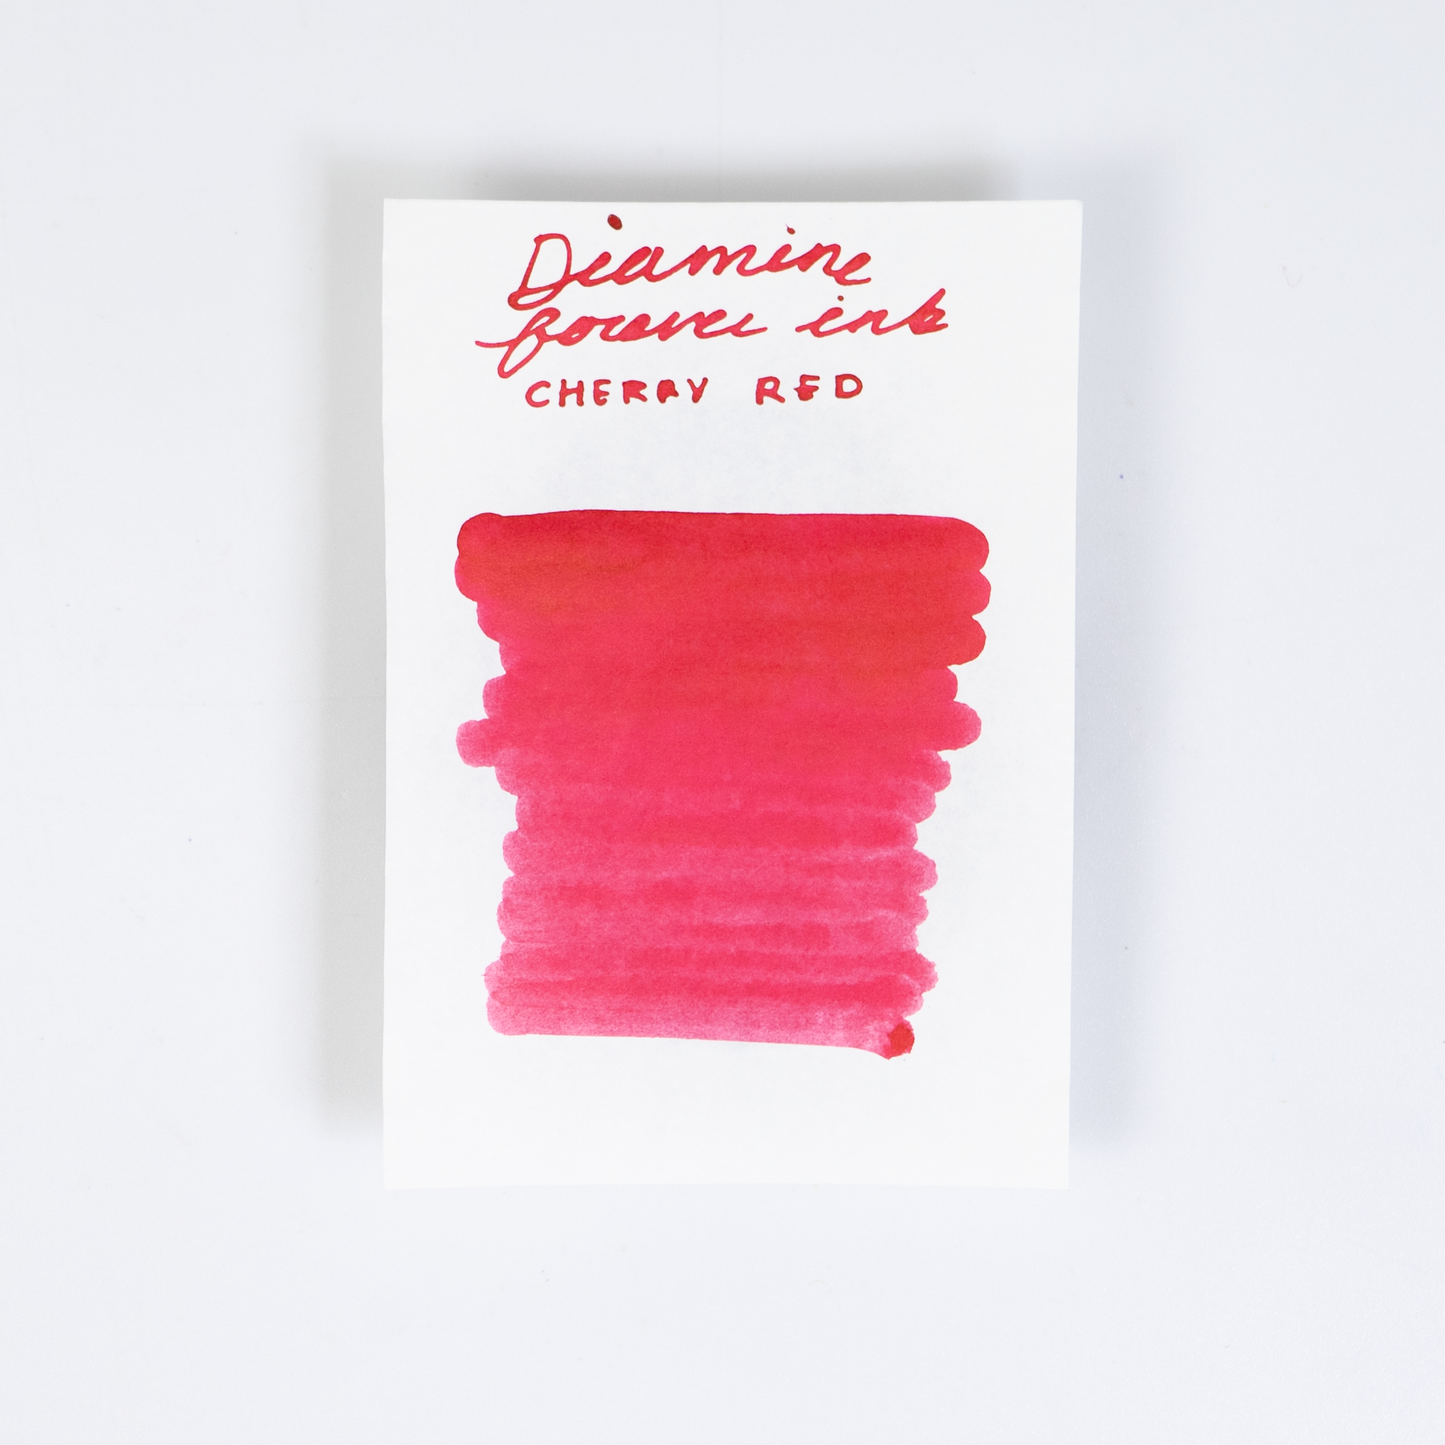 Diamine
forever ink
CHERRY RED